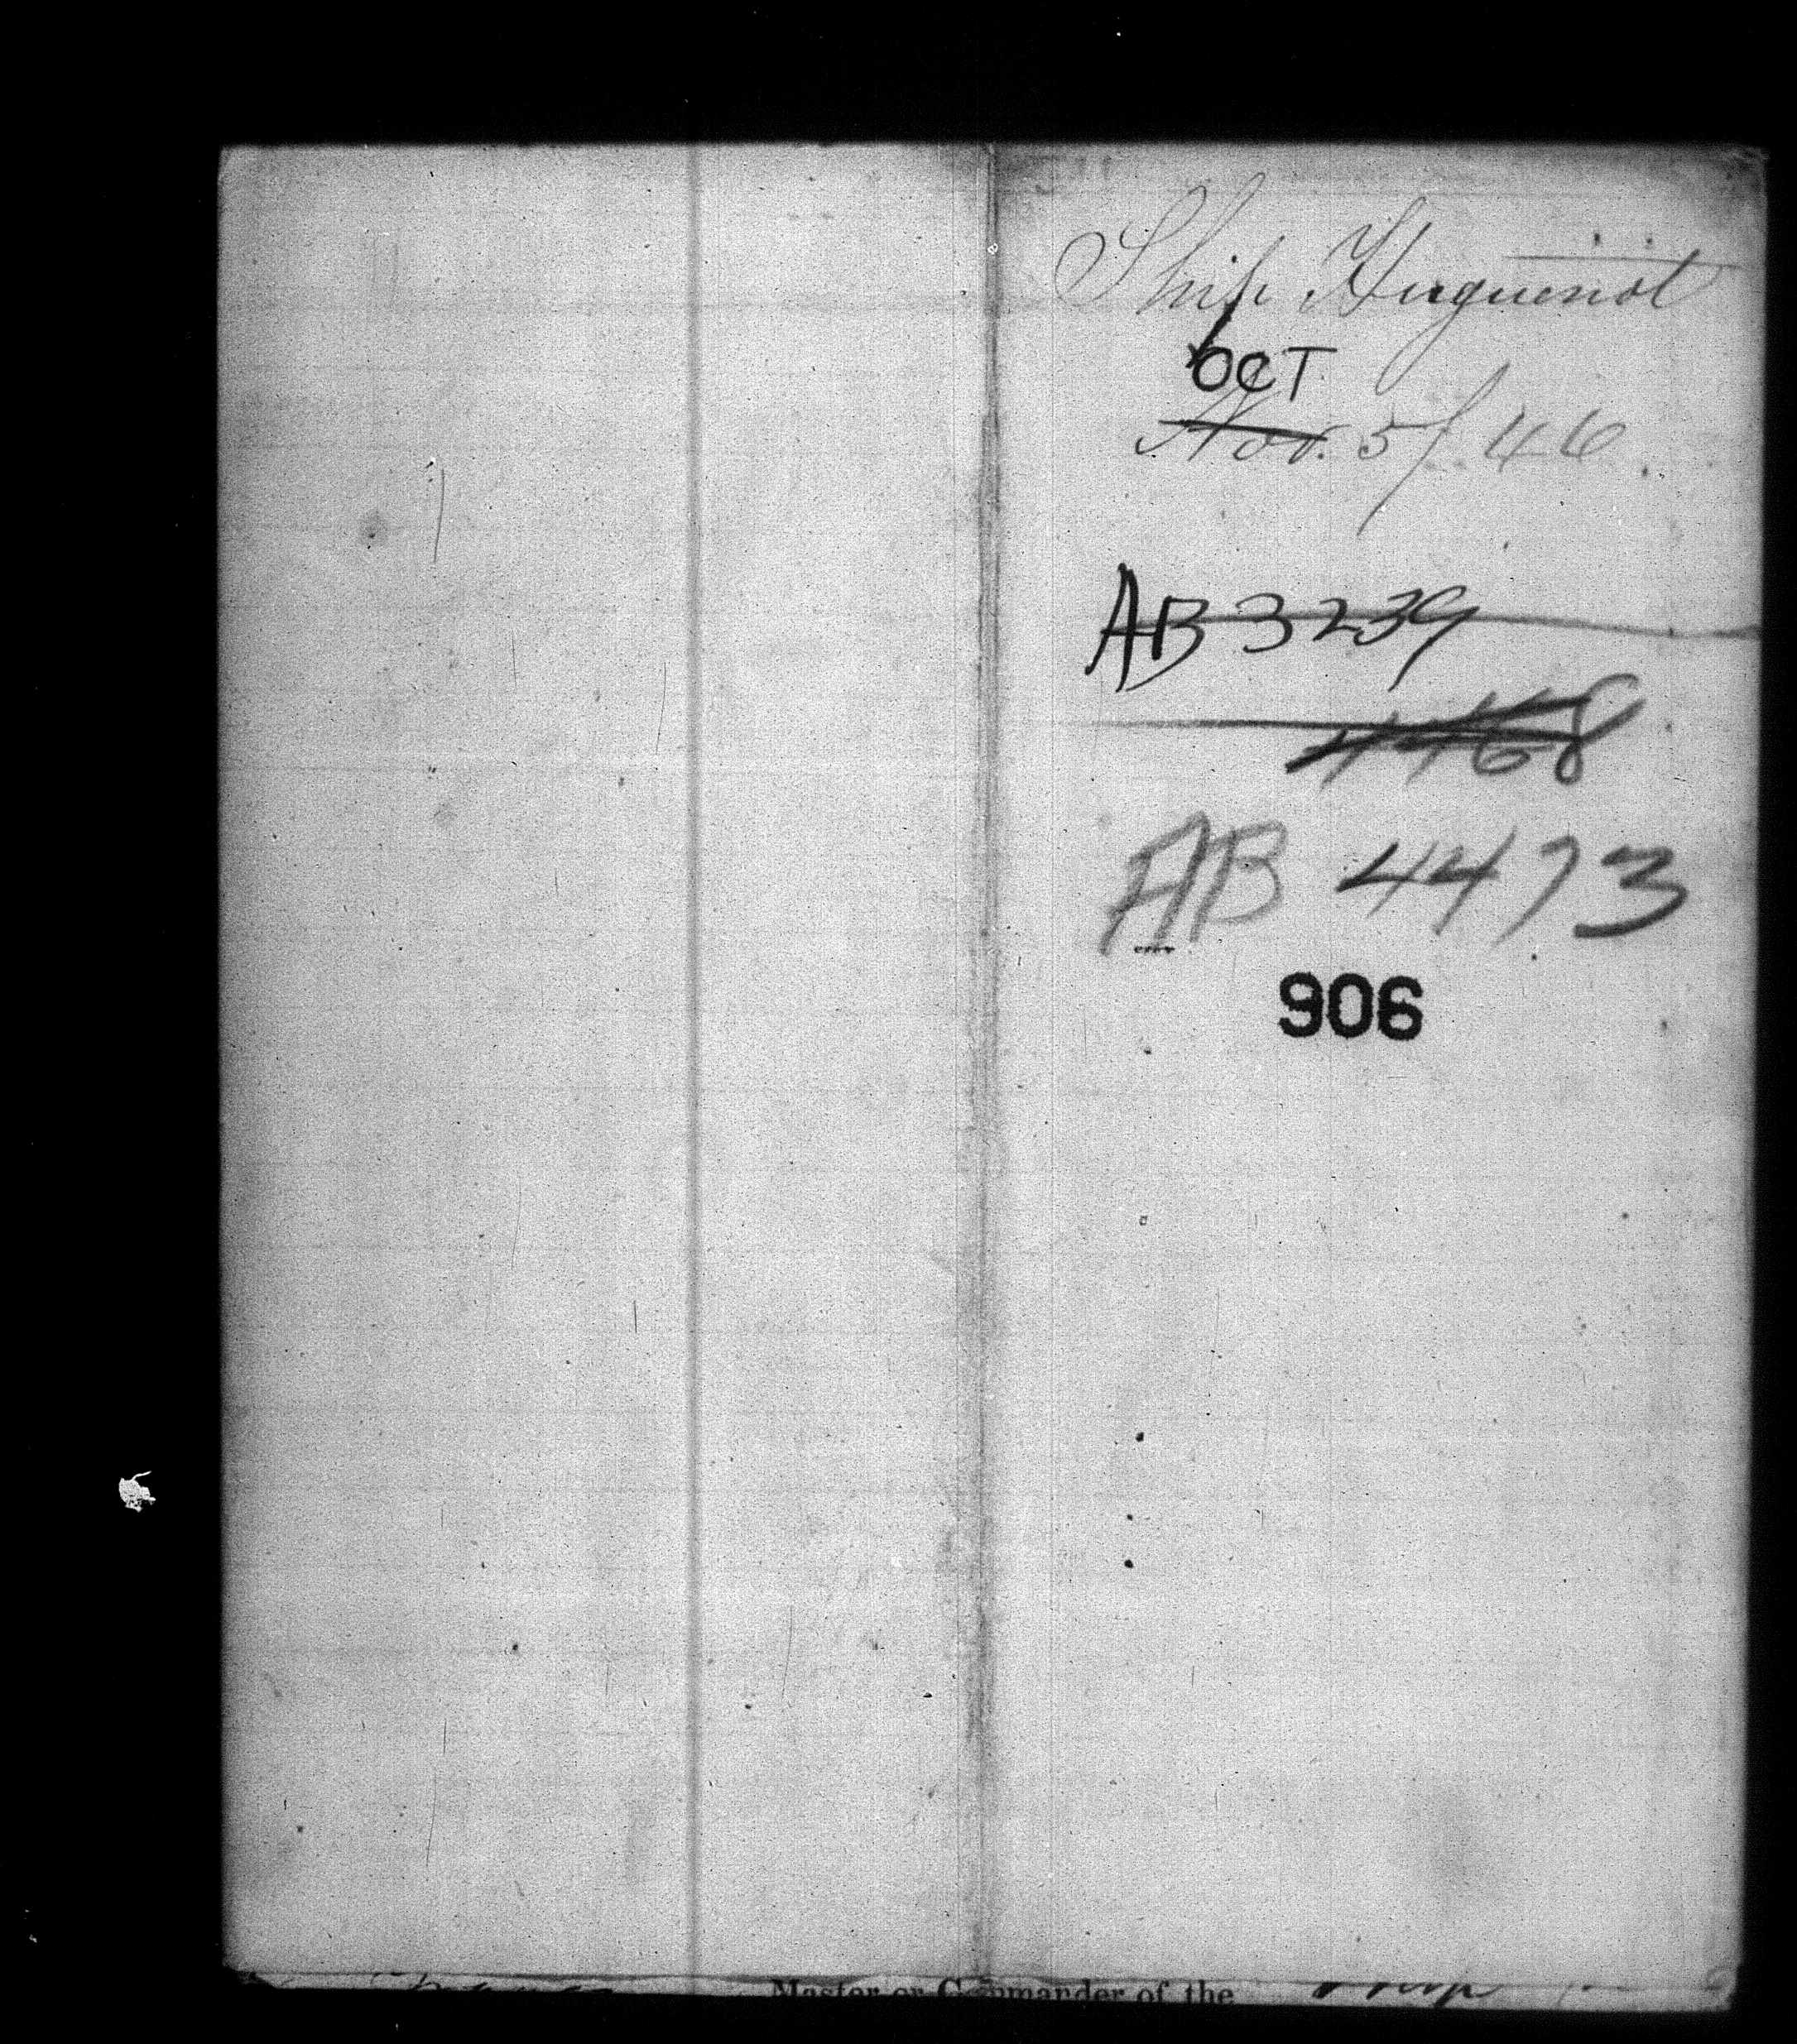 Ship Huguenot
OCT
Nov. 5/46
AB 3239
4468
AB 4473
906
Master or Commander of the Ship